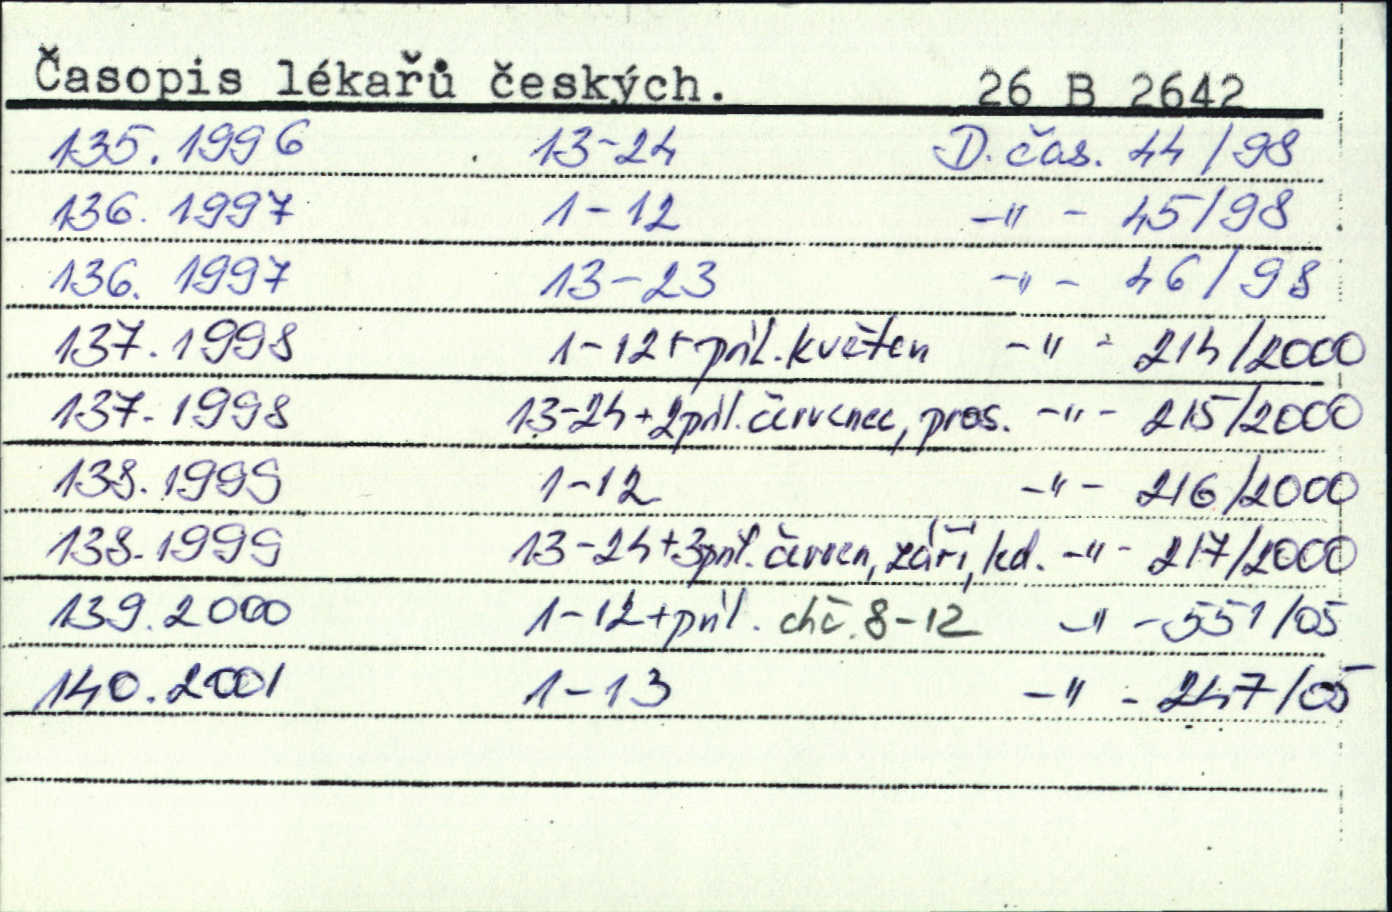 Časopis lékařů českých. 26 B 2642
135. 1996 13-24 D. čas. 44/98
136. 1997 1-12 -"- 45/98
136. 1997 13-23 -"- 46/98
137. 1998 1-12+příl. květen -"- 214/2000
137. 1998 13-24+2příl. červenec, pros. -"- 215/2000
138. 1999 1-12 -"- 216/2000
138. 1999 13-24+3příl. červen, září, -"- 217/2000
139. 2000 1-12+příl. chč. 8-12 -"- 551/05
140. 2001 1-13 -"- 247/05